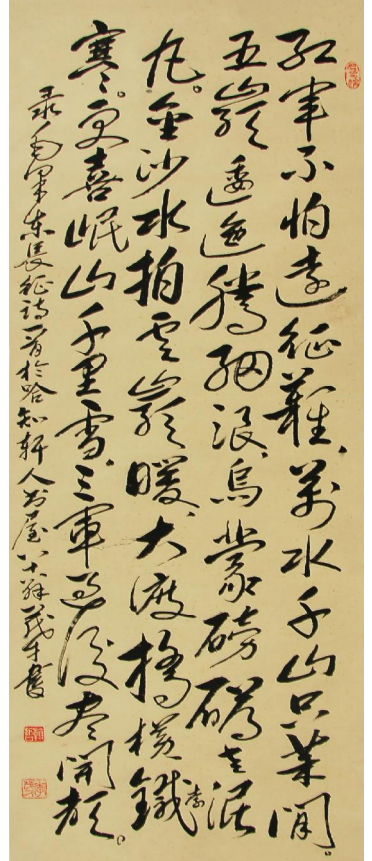 紅軍不怕遠征難、萬水千山只等閒。
五嶺逶迤騰細浪、烏蒙磅礴走泥
丸。金沙水拍雲崖暖、大渡橋橫鐵索
寒。更喜岷山千里雪、三軍過後盡開顏。
录毛澤东長征詩一首於哈知軒人屋八十茂才書